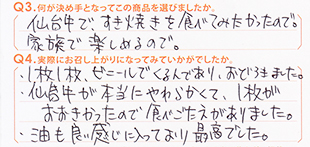 Q3.何が決め手となってこの商品を選びましたか。
仙台牛で、すき焼きを食べてみたかったので。
家族で楽しめるので。
Q4.実際にお召し上がりになってみていかがでしたか。
・1枚1枚、ビニールでくるんであり、おどろきました。
・仙台牛が本当にやわらかくて、1枚が
おおきかったので食べごたえがありました。
・油も良い感じに入っており最高でした。